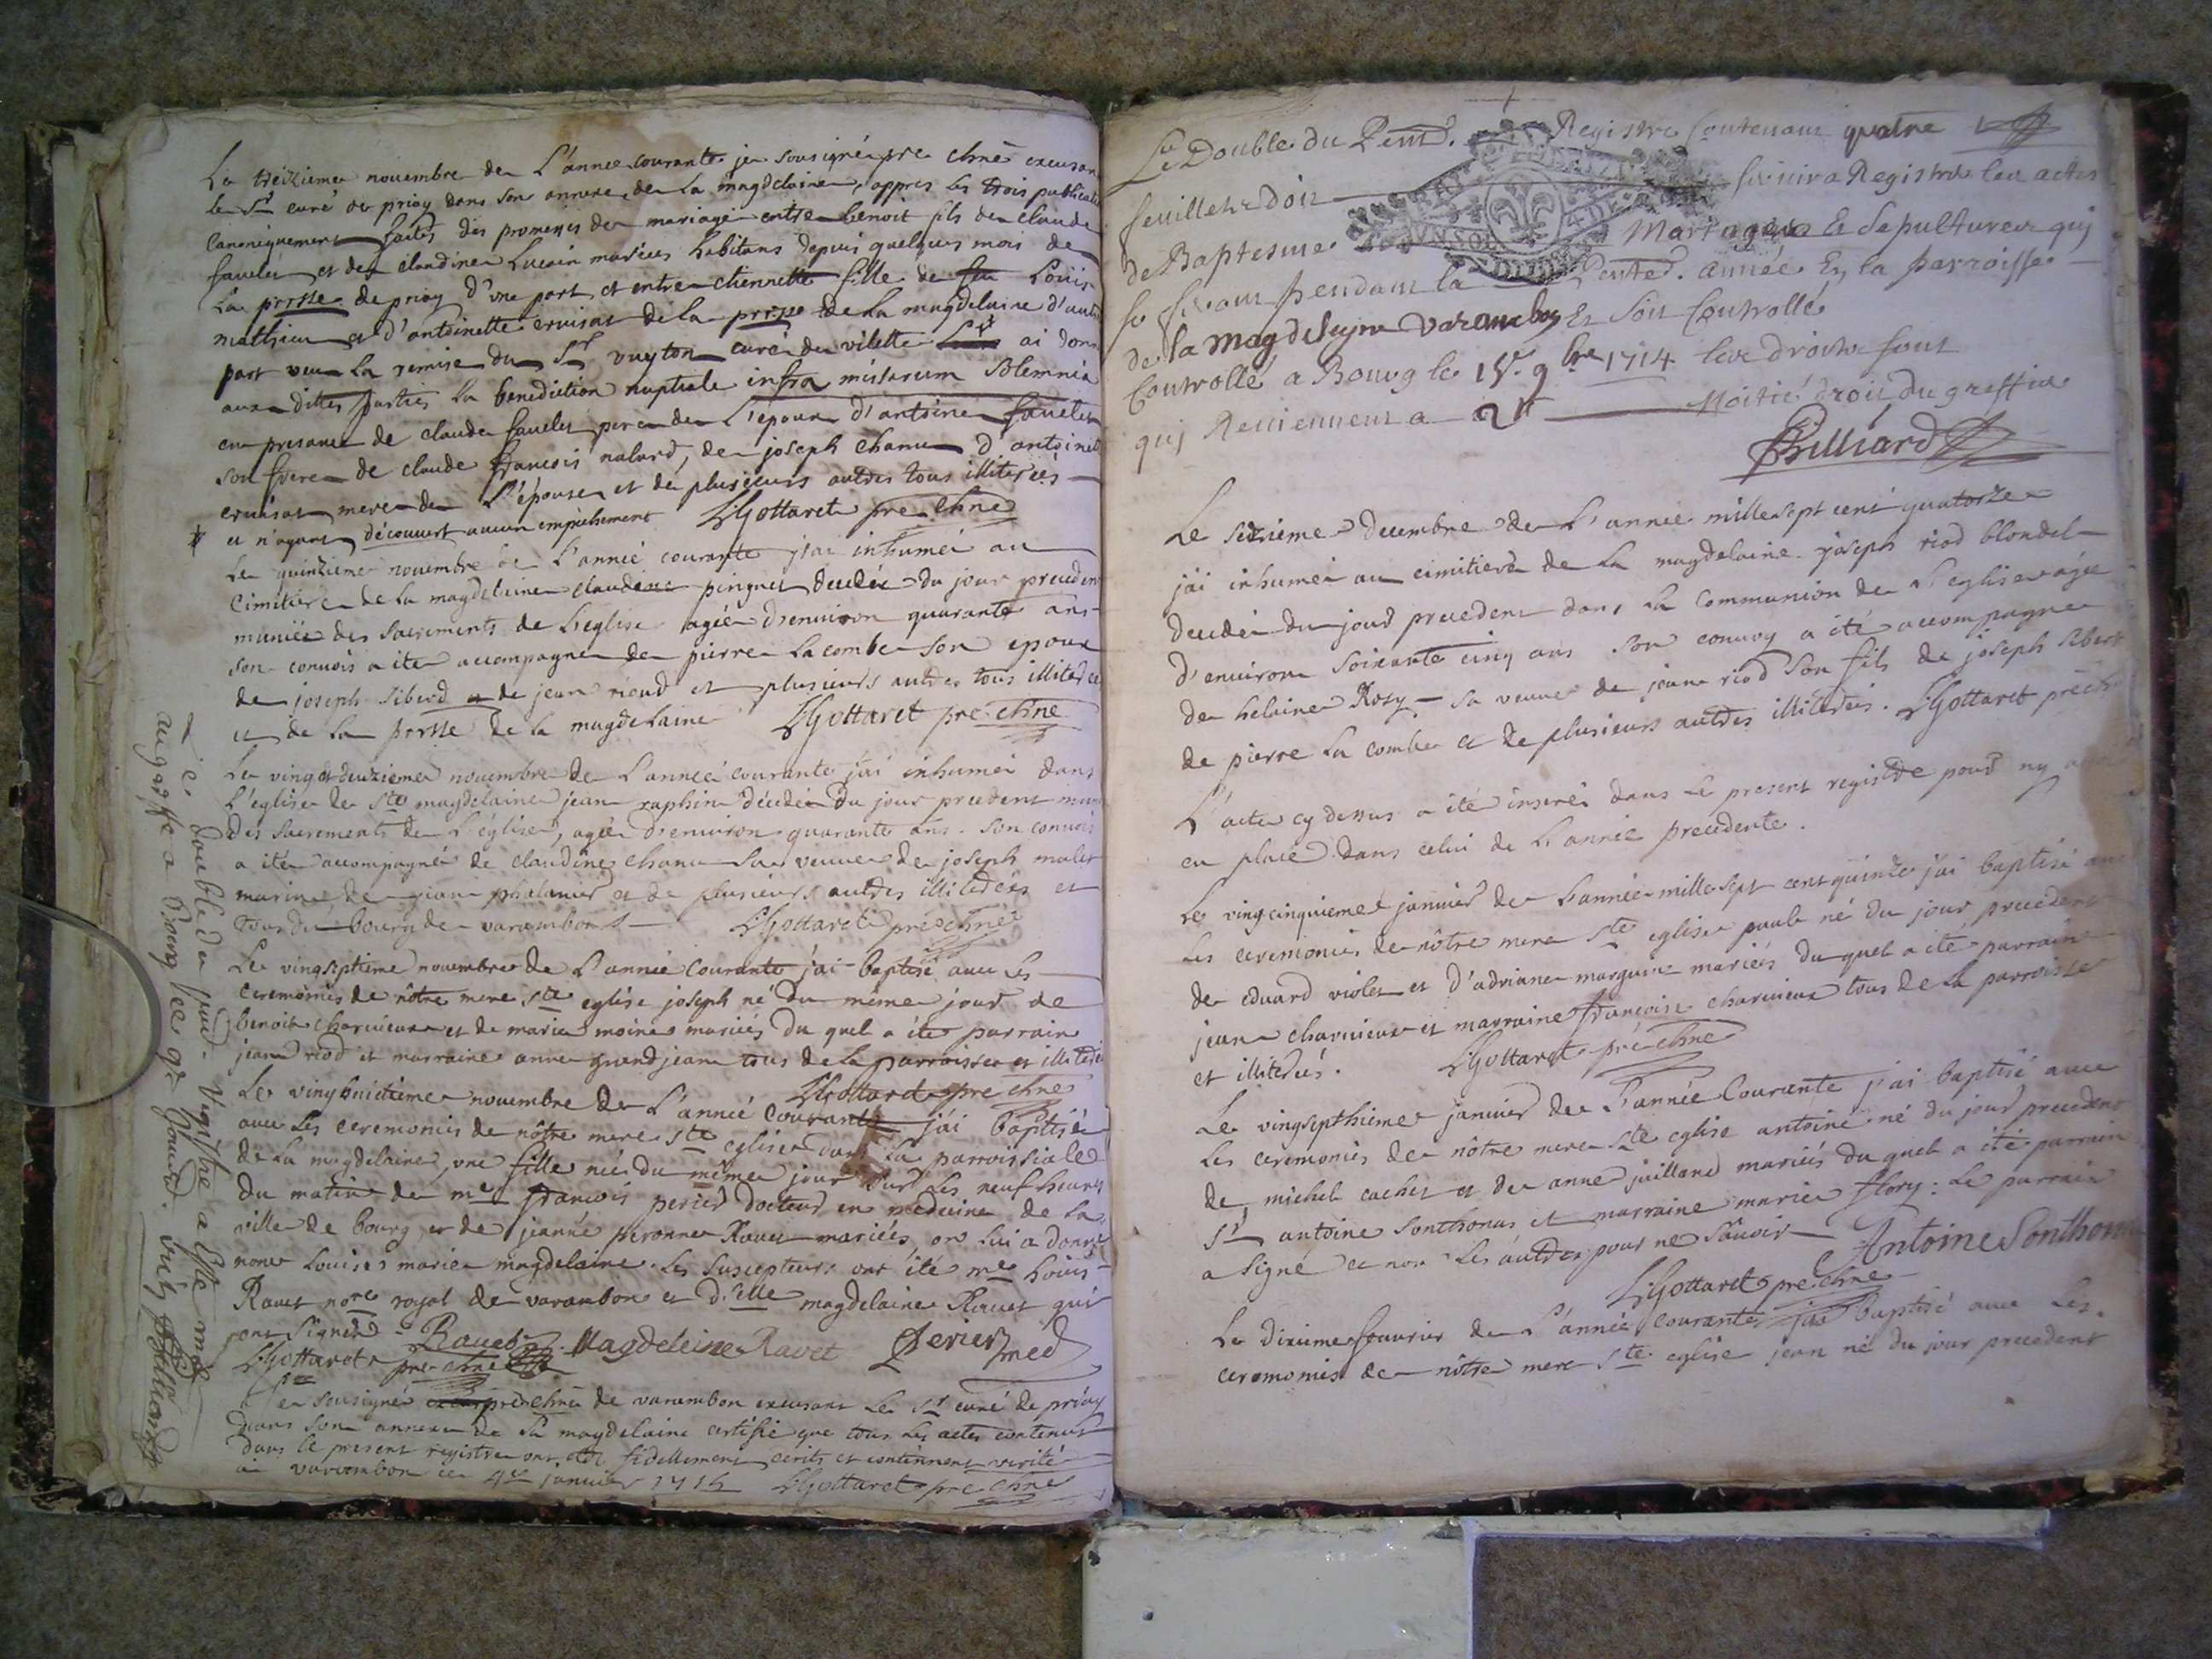 Le treizieme novembre de L'annee courante je sousigné pre chne excusan
le Sr curé de priay dans son annexe de La magdelaine, appres les trois publicat
Canoniquement faites des promesses de mariage entre benoit fils de claude
favelet et de claudine Lucain mariees habitans depuis quelques mois de
La prrsse de priay d'vne part et entre etiennette fille de feu Louis
mathieu et d'antoinette cruisat de la prrsse de La magdelaine d'autr
part veu la remise du Sr vuyton curé de vilette ai donn
aux dittes parties La benediction nuptiale infra missarum Solemnia
en presance de claude favelet pere de L'epoux d'antoine favelet
son frere de claude françois nalard, de joseph chanu d'antoinet
cruisat mere de L'épouse et de plusieurs autres tous illiterés
et n'ayant découuert aucun empéchement LGottaret pre chne
Le quinzieme novembre de L'année courante j'ai inhumée au
Cimitiere de la magdelaine claudine pinguet decedée du jour preceden
muniée des Sacrements de L'eglise agée d'environ quarante ans
son convois a ité accompagné de pierre La combe son epoux
de joseph siberd et de jean rioud et plusieurs autres tous illitere
et de la prrsse de la magdelaine LGottaret pre chne
Le vingtdeuxieme novembre de L'année courante j'ai inhumé dans
L'eglise de Ste magdelaine jean raphin décédé du jour precedent muni
des sacrements de L'église, agée d'environ quarante ans. son convois
a ité accompagné de claudine chanu sa veuve de joseph mulet
marine, de jean phalanier et de plusieurs autres illiterés et
tous du bourg de varambon LGottaret pre chne
Le vingseptieme novembre de L'année Courante j'ai baptisé avec Les
Ceremonies de nôtre mere Ste eglise joseph né du même jour de
benoit charvieux et de marie moine mariés du quel a été parrain
jean riod et marraine anne grandjean tous de la parroisse et illiteré
LGottaret pre chne
Le vinghuictieme novembre de L'année Courante j'ai baptisée
avec Les ceremonies de nôtre mere Ste eglise dans La parroissiale
de La magdelaine, vne fille née du même jour sur Les neuf heures
du matin de mr françois perier docteur en medecine de La
ville de bourg et de jeanne peronne Ravet mariés, on lui a donné
nom Louise marie magdelaine. Les Suscepteurs ont ité mre Louis
Ravet nore royal de varambon et d'elle magdelaine Ravet qui
ont signés Ravet Magdeleine Ravet Perier med
LGottaret pre chne
Je sousigné pre chne de varambon excusant Le Sr curé de priay
dans son annexe de La magdelaine certifie que tous Les actes contenus
dans le present registre ont eté fidellement écrits et contiennent verité
a varambon ce 4me janvier 1715 LGottaret pre chne
Le double du pnt. registre a esté mis
au greffe a Bourg
Billiard
Le Double du Pent. Registre Contenant quatre
feuillets doit servir a Registrer les actes
de Baptesme Mariages Et Sepultures qui
se feront pendant la pente. année En la parroisse
de la magdeleyne varambon Et Soit Controllé
Controllé a Bourg le 15e 9bre 1714 les droits sont
qui Reviennent a 2tt Moitié droit du greffier
Billiard
Le seizieme Decembre de L'annee mille sept cent quatorze
j'ai inhumé au cimitiere de La magdelaine joseph riod blondel
decedé du jour precedent dans La Communion de L'eglise agé
d'environ soixante cinq ans son convoy a ité accompagné
de helaine Rosy sa veuve de jean riod son fils de joseph sibert
de pierre La combe et de plusieurs autres illiterés. LGottaret pre ch
L'acte cy dessus a ité inseré dans Le present registre pour ny
en place dans celui de L'année precedente.
Le vingcinquieme janvier de L'année mille sept cent quinze j'ai baptisé
Les ceremonies de nôtre mere Ste eglise paule né du jour precedent
de eduard violet et d'adriane marguin mariés du quel a ité parrain
jean charvieux et marraine françoise charvieux tous de La parroisse
et illiterés. LGottaret pre chne
Le vingsepthieme janvier de L'année Courante j'ai baptisé avec
Les ceremonies de nôtre mere Ste eglise antoine né du jour precedent
de michel cachet et de anne juillard mariés du quel a ité parrain
Sr antoine sonthonas et marraine marie flory: Le parrain
a signé et non Les autres pour ne sçavoir Antoine Sonthon
LGottaret pre chne
Le dixieme fevrier de L'année courante j'ai baptisé avec Les
ceremonies de nôtre mere Ste eglise jean né du jour precedent